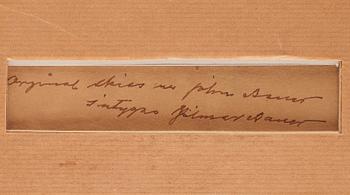 Orginal skiss av John Bauer
intygas Hjalmar Bauer